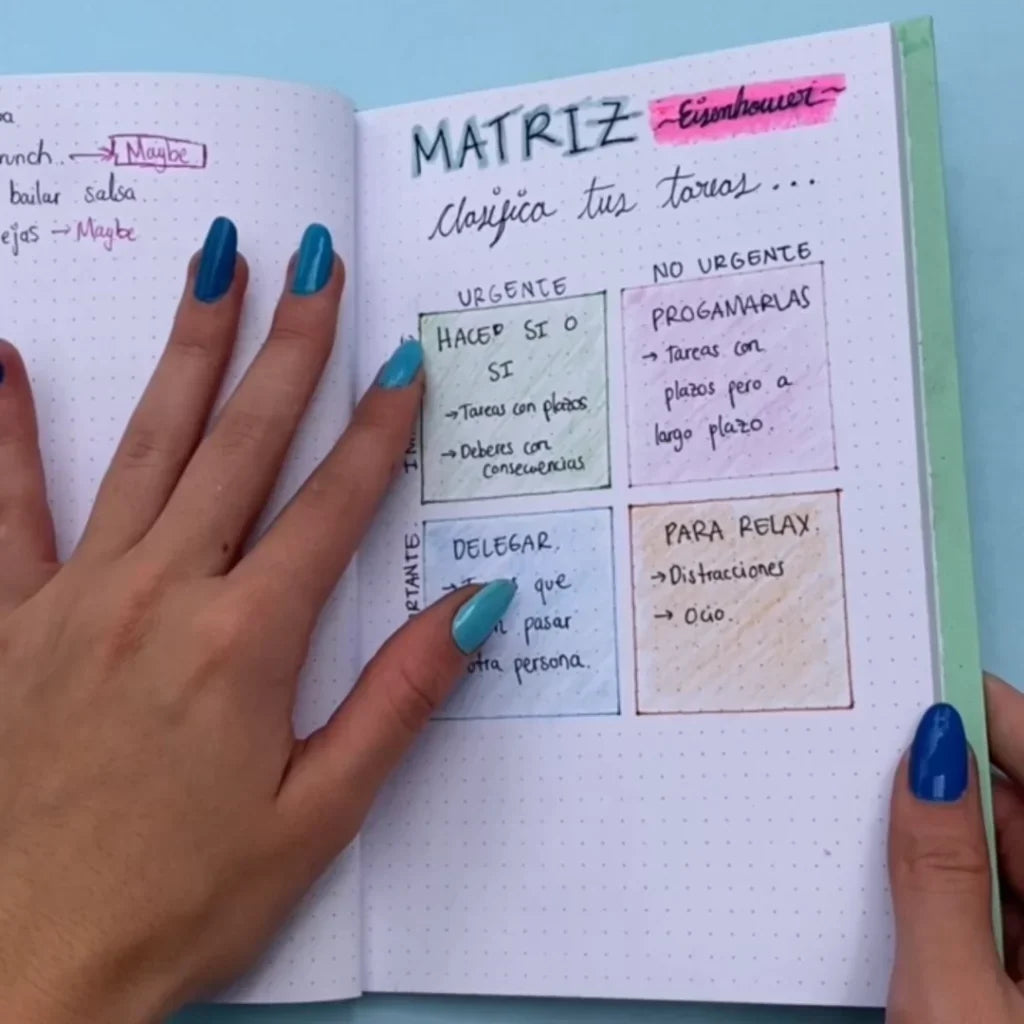 Maybe
bailar salsa
Maybe
MATRIZ ~Eisenhower~
Clasifica tus tareas...
URGENTE
NO URGENTE
HACER SI O
SI
→Tareas con plazos
→Deberes con
consecuencias
PROGAMARLAS
→ Tareas con
plazos pero a
largo plazo.
DELEGAR.
que
pasar
otra persona.
PARA RELAX.
→Distracciones
→ Ocio.